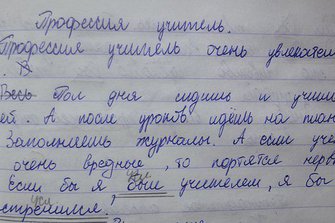 Профессия учитель.
Профессия учитель очень увлекател
.
Весь Пол дня сидишь и учиш
ей. А после уроков идёшь на план
Заполняешь журналы. А если уче
очень вредные, то портятся нерв
Если бы я был учителем, я бы
усл
стрелился.